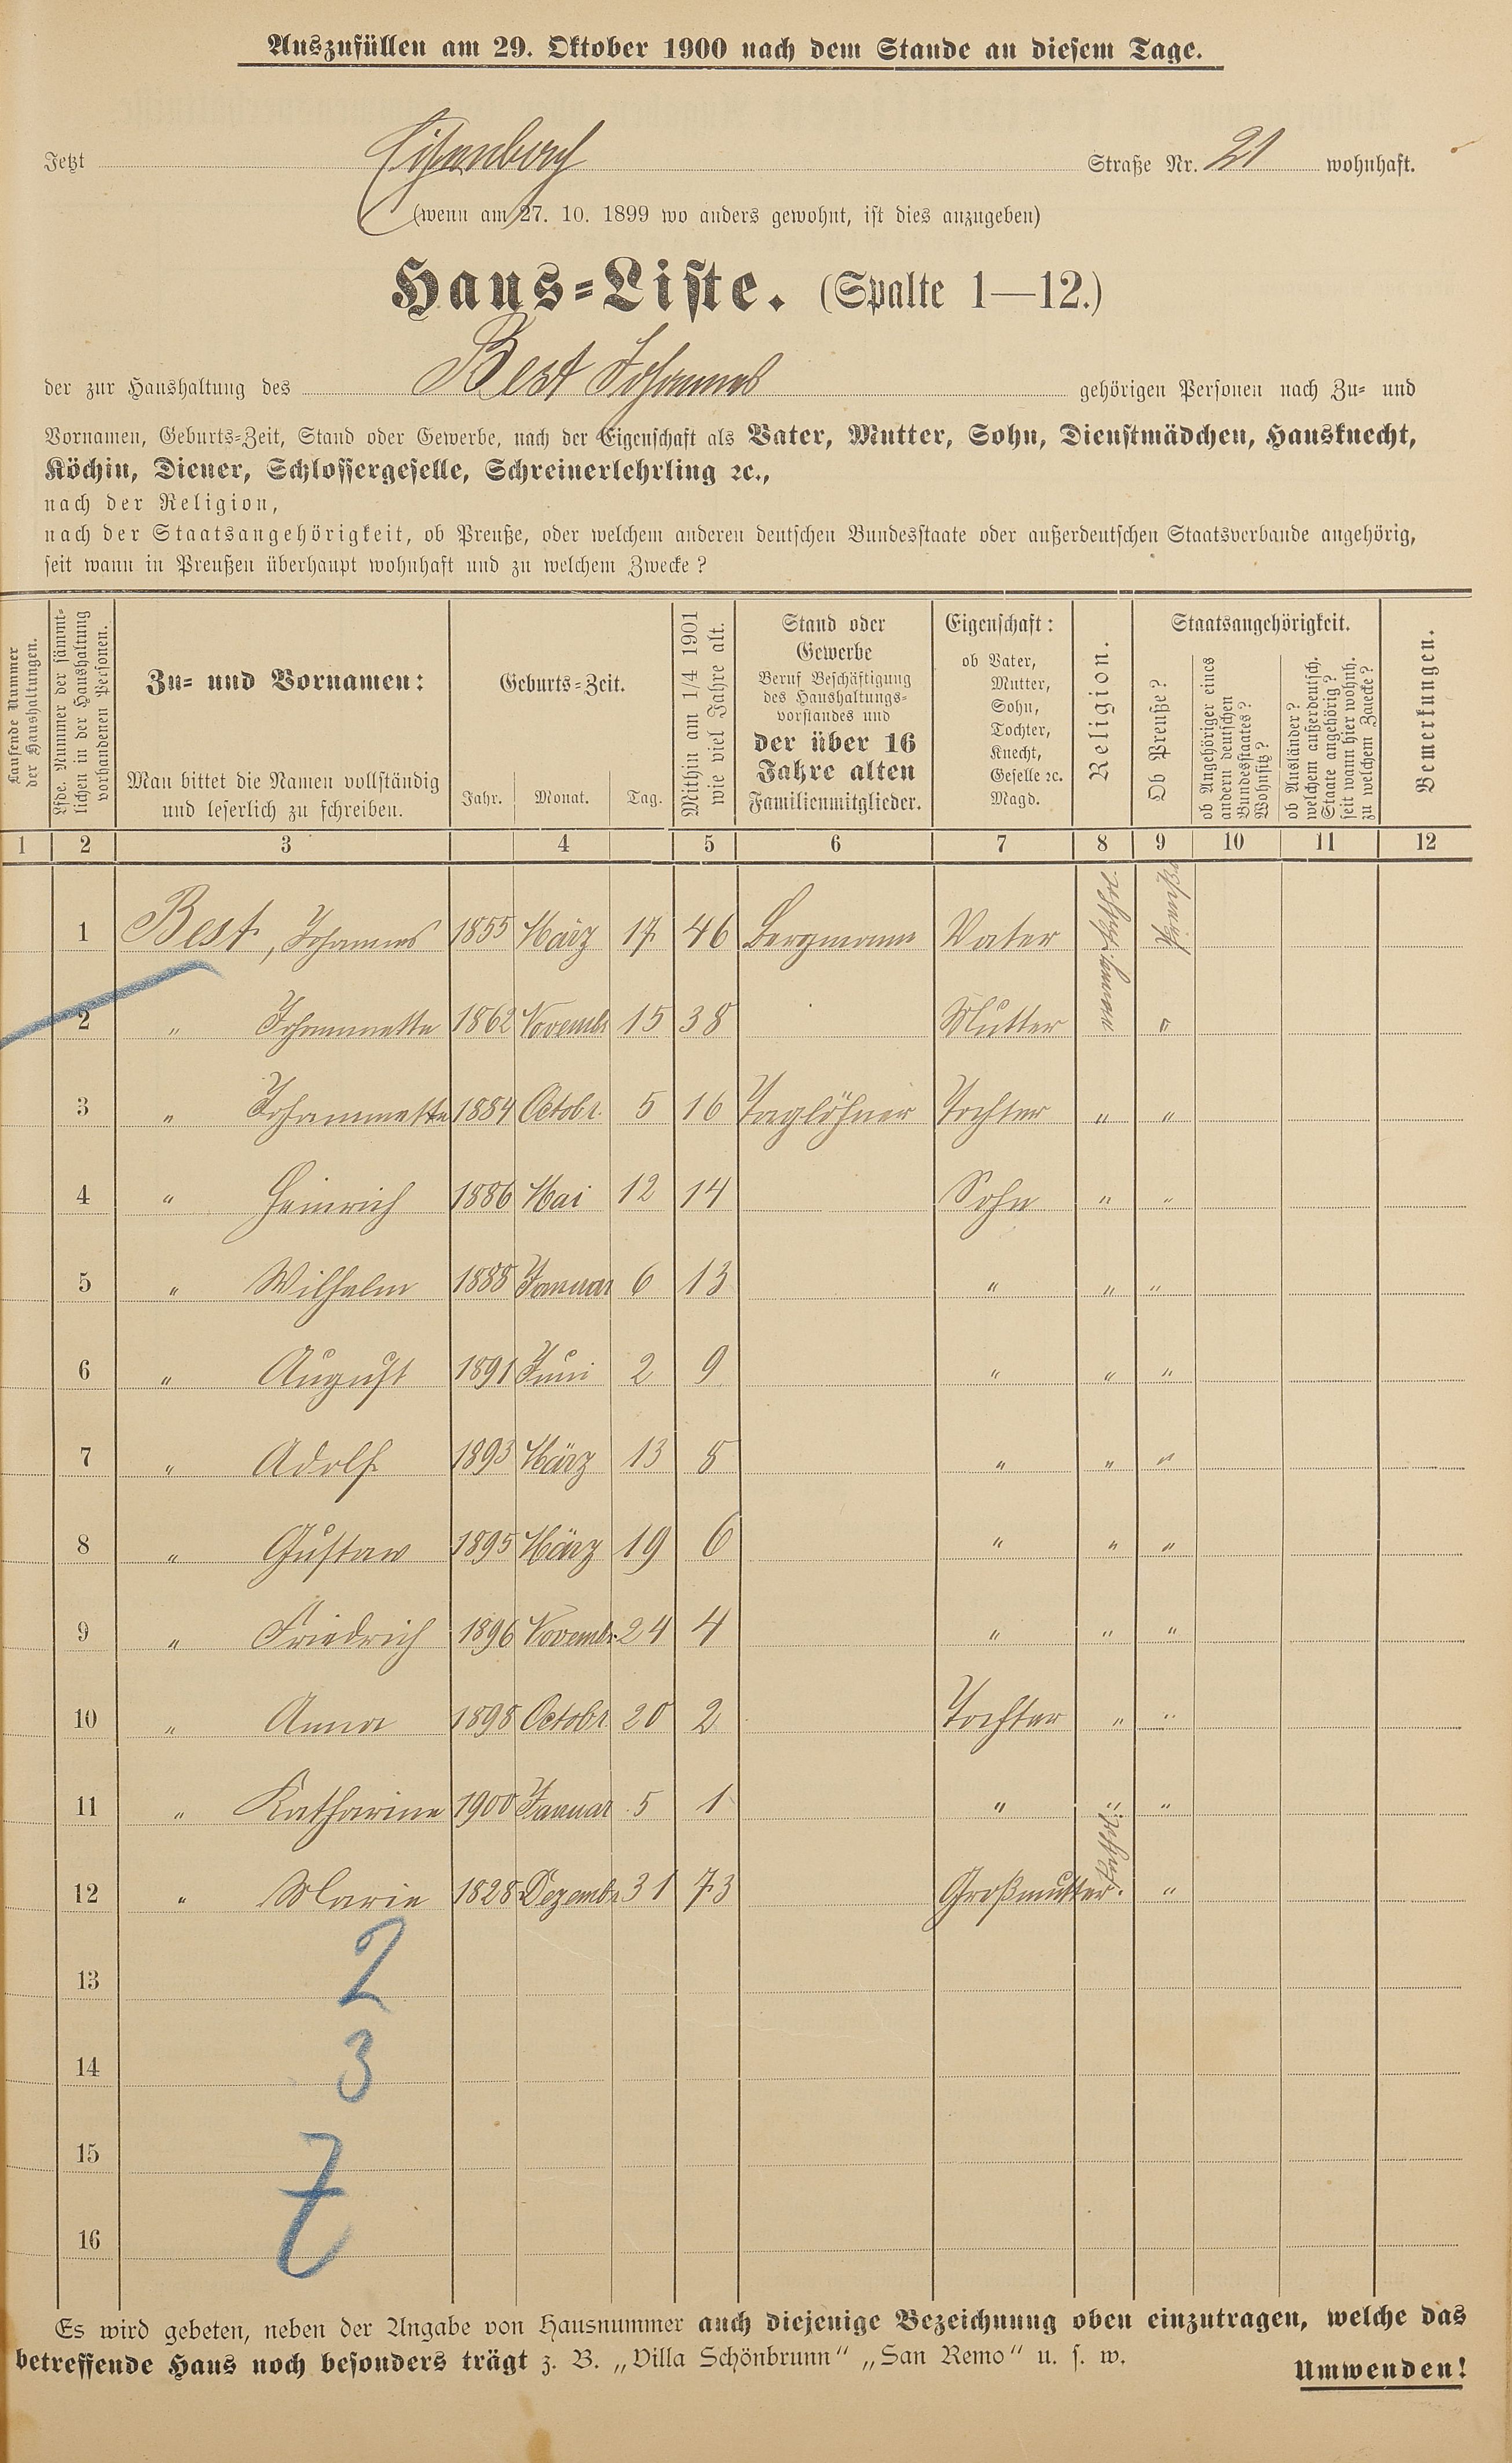 Auszufüllen am 29. Oktober 1900 nach dem Stande an diesem Tage.
Jetzt Eisenberg Straße Nr. 21 wohnhaft.
(wenn am 27. 10. 1899 wo anders gewohnt, ist dies anzugeben)
Haus-Liste. (Spalte 1—12.)
der zur Haushaltung des Best Johannes gehörigen Personen nach Zu- und
Vornamen, Geburts-Zeit, Stand oder Gewerbe, nach der Eigenschaft als Vater, Mutter, Sohn, Dienstmädchen, Hausknecht,
Köchin, Diener, Schlossergeselle, Schreinerlehrling ꝛc.,
nach der Religion,
nach der Staatsangehörigkeit, ob Preuße, oder welchem anderen deutschen Bundesstaate oder außerdeutschen Staatsverbande angehörig,
seit wann in Preußen überhaupt wohnhaft und zu welchem Zwecke?
Laufende Nummer
der Haushaltungen.
Lfde. Nummer der sämmt-
lichen in der Haushaltung
vorhandenen Personen.
Zu- und Vornamen:
Man bittet die Namen vollständig
und leserlich zu schreiben.
Geburts-Zeit.
Jahr. Monat. Tag.
Mithin am 1/4 1901
wie viel Jahre alt.
Stand oder
Gewerbe
Beruf Beschäftigung
des Haushaltungs-
vorstandes und
der über 16
Jahre alten
Familienmitglieder.
Eigenschaft:
ob Vater,
Mutter,
Sohn,
Tochter,
Knecht,
Geselle ꝛc.
Magd.
Religion.
Staatsangehörigkeit.
Ob Preuße?
ob Angehöriger eines
andern deutschen
Bundesstaates?
Wohnsitz?
ob Ausländer?
welchem außerdeutsch.
Staate angehörig?
seit wann hier wohnh.
zu welchem Zwecke?
Bemerkungen.
1 2 3 4 5 6 7 8 9 10 11 12
1 Best, Johannes 1855 März 17 46 Bergmann Vater
2 " Johannette 1862 Novembr 15 38 Mutter "
3 " Johannette 1884 Octobr. 5 16 Taglöhner Tochter " "
4 " Heinrich 1886 Mai 12 14 Sohn " "
5 " Wilhelm 1888 Januar 6 13 " " "
6 " August 1891 Juni 2 9 " " "
7 " Adolf 1893 März 13 8 " " "
8 " Gustav 1895 März 19 6 " " "
9 " Friedrich 1896 Novembr 24 4 " " "
10 " Anna 1898 Octobr 20 2 Tochter " "
11 " Katharine 1900 Januar 5 1 " " "
12 " Marie 1828 Dezembr 31 73 Großmutter "
13 2
14 3
15
16 7
Es wird gebeten, neben der Angabe von Hausnummer auch diejenige Bezeichnung oben einzutragen, welche das
betreffende Haus noch besonders trägt z. B. „Villa Schönbrunn" „San Remo" u. s. w.
Umwenden!